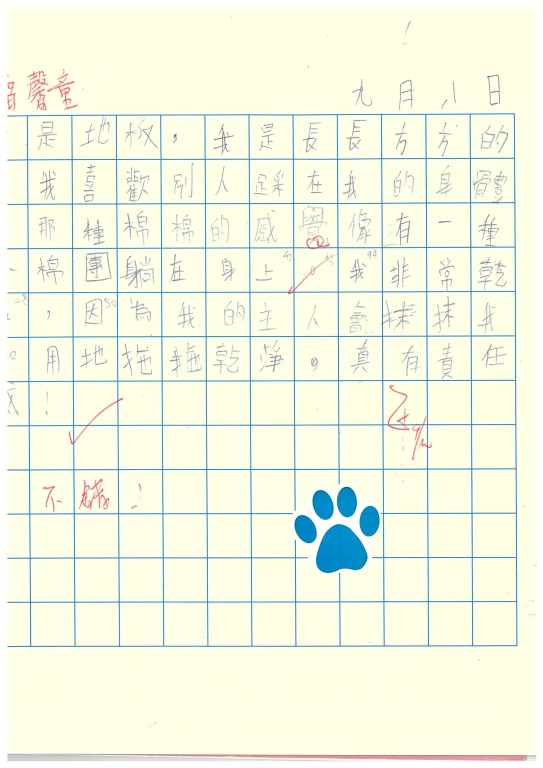 九月八日
馨童
是地板，我是長長方方的
我喜歡別人踩在我的身體
那種棉棉的感覺像有一種
棉團躺在身上。我非常乾
，因為我的主人會抹抹我
用地拖拖乾淨。真有責任
感！
不錯！